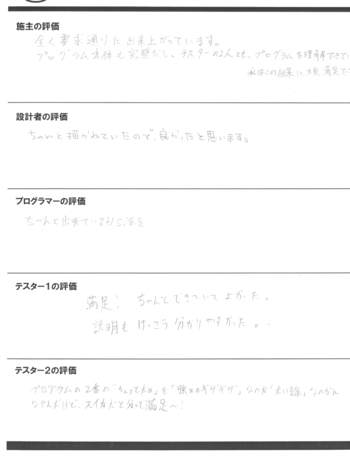 施主の評価
全く要求通りに出来上がっています。
プログラム自体も完璧だし、テスターの2人とも、プログラムを理解できてい
私はこの結果に大変満足で
設計者の評価
ちゃんと描かれていたので、良かったと思います。
プログラマーの評価
ちゃんと出来ているから満足
テスター1の評価
満足! ちゃんとできていてよかった。
説明もけっこう分かりやすかった。
テスター2の評価
プログラムの2番の
なやんだけど、スイカだと分って満足〜!